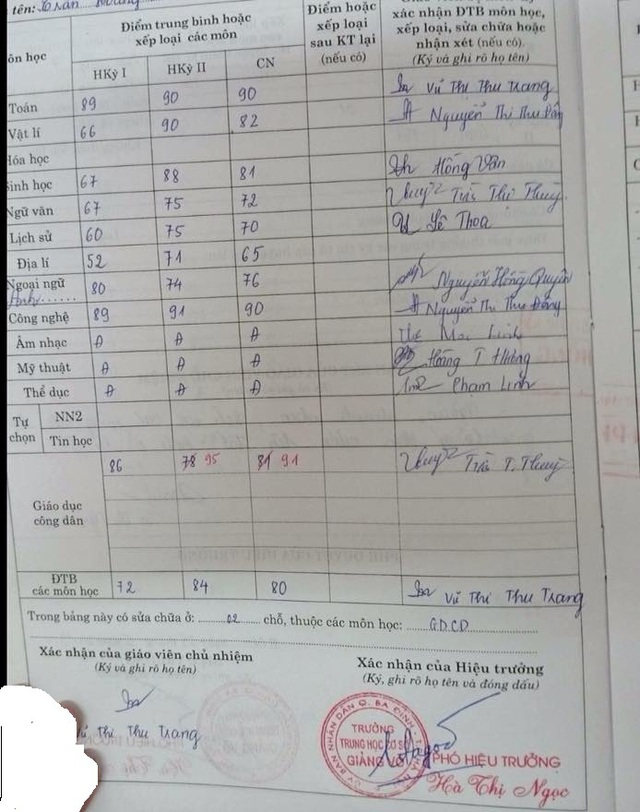 tên: Trần
ôn học
Điểm trung bình hoặc
xếp loại các môn
HKỳ I HKỳ II CN
Điểm hoặc
xếp loại
sau KT lại
(nếu có)
xác nhận ĐTB môn học,
xếp loại, sửa chữa hoặc
nhận xét (nếu có)
(Ký và ghi rõ họ tên)
Toán 89 90 90 Vũ Thị Thu Trang
Vật lí 66 90 82 Nguyễn Thị Thu Đông
Hóa học
Sinh học 67 88 81 Hồng Vân
Ngữ văn 67 75 72 Thuý Trần Thị Thuý
Lịch sử 60 75 70 Lê Thoa
Địa lí 52 71 65
Ngoại ngữ 80 74 76 Nguyễn Hồng Quyên
Anh
Công nghệ 89 91 90 Nguyễn Thị Thu Đông
Âm nhạc Đ Đ Đ Linh
Mỹ thuật Đ Đ Đ Hoàng T Hồng
Thể dục Đ Đ Đ Phạm Linh
Tự
chọn
NN2
Tin học
Giáo dục
công dân
86 78 95 81 91 Thuý Trần T. Thuý
ĐTB
các môn học
72 84 80 Vũ Thị Thu Trang
Trong bảng này có sửa chữa ở: 02 chỗ, thuộc các môn học: GDCD
Xác nhận của giáo viên chủ nhiệm
(Ký và ghi rõ họ tên)
Thị Thu Trang
Xác nhận của Hiệu trưởng
(Ký, ghi rõ họ tên và đóng dấu)
ỦY BAN NHÂN DÂN Q. BA ĐÌNH
TRƯỜNG
TRUNG HỌC CƠ SỞ
GIẢNG VÕ
PHÓ HIỆU TRƯỞNG
Hà Thị Ngọc